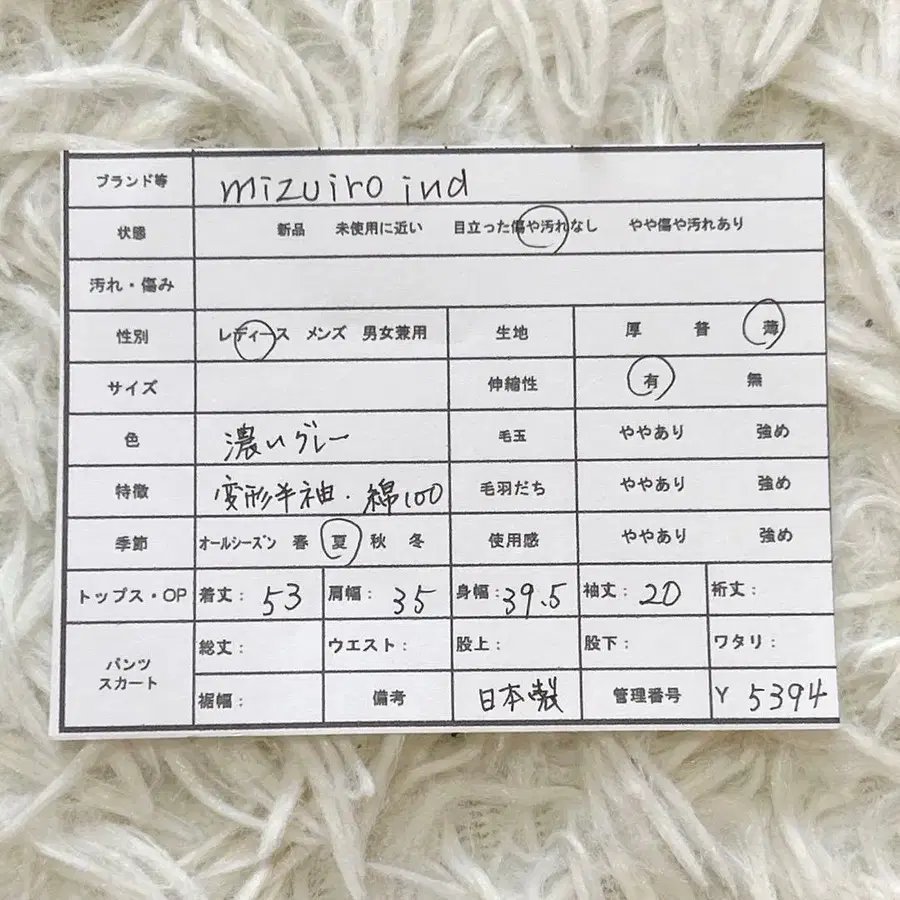 ブランド等 mizuiro ind
状態 新品 未使用に近い 目立った傷や汚れなし やや傷や汚れあり
汚れ・傷み
性別 レディース メンズ 男女兼用 生地 厚 普 薄
サイズ 伸縮性 有 無
色 濃いグレー 毛玉 ややあり 強め
特徴 変形半袖・綿100 毛羽だち ややあり 強め
季節 オールシーズン 春 夏 秋 冬 使用感 ややあり 強め
トップス・OP 着丈: 53 肩幅: 35 身幅: 39.5 袖丈: 20 裄丈:
パンツ スカート 総丈: ウエスト: 股上: 股下: ワタリ:
裾幅: 備考 日本製 管理番号 Y 5394